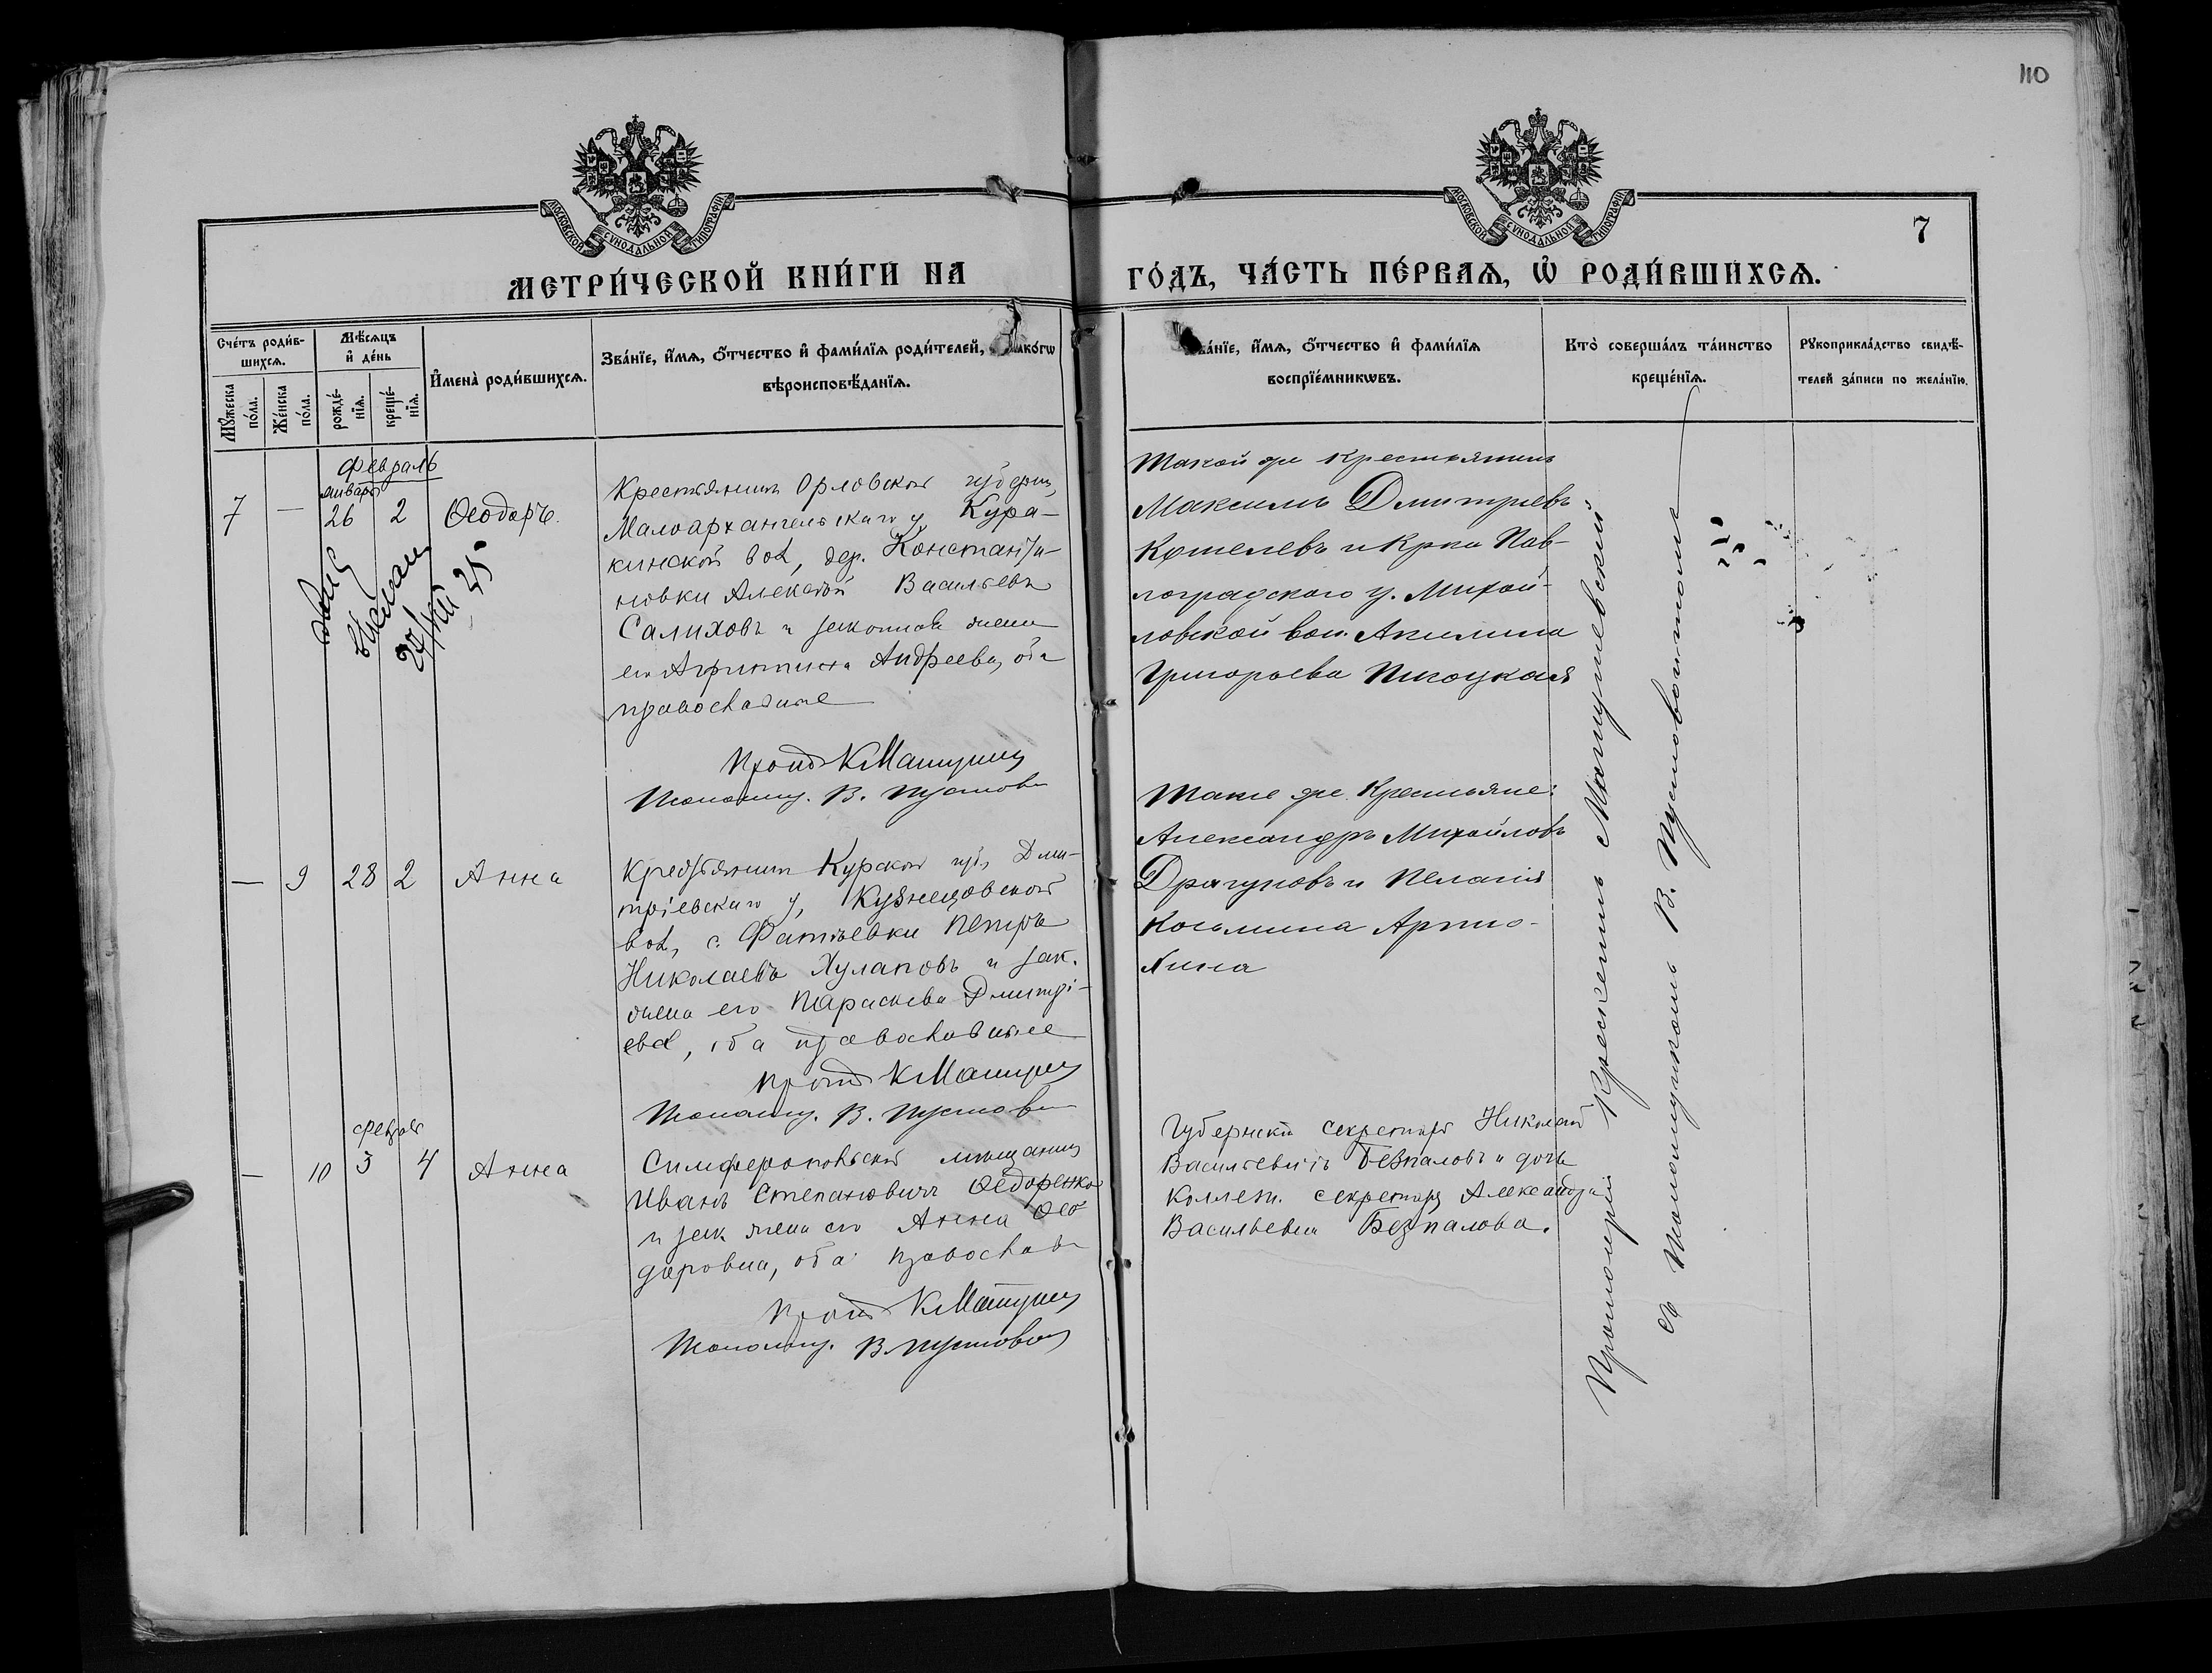 110
МОСКОВСКОЙ СУНОДАЛЬНОЙ ТИПОГРАФІИ
МОСКОВСКОЙ СУНОДАЛЬНОЙ ТИПОГРАФІИ
7
МЕТРИ́ЧЕСКОЙ КНИ́ГИ НА
ГО́ДЪ, ЧА́СТЬ ПЕ́РВАЯ, Ѡ҆ РОДИ́ВШИХСЯ.
Сче́тъ роди́в-
шихсѧ.
Мѹ́жеска
по́ла.
Же́нска
по́ла.
Мѣ́сѧцъ
и҆ де́нь
рожде́-
нїѧ.
креще́-
нїѧ.
И҆мена̀ роди́вшихсѧ.
Зва́нїе, и҆́мѧ, ѻ҆́тчество и҆ фами́лїѧ роди́телей, како́гѡ
вѣроисповѣ́данїѧ.
ва́нїе, и҆́мѧ, ѻ҆́тчество и҆ фами́лїѧ
воспрїе́мникѡвъ.
Кто̀ соверша́лъ та́инство
креще́нїѧ.
Рѹкоприкла́дство свидѣ́-
телей за́писи по жела́нїю.
Февраль
января
7 — 26 2 Ѳеодоръ.
27/XII 25
Крестьянинъ Орловской губерн,
Малоархангельскаго у, Кура-
кинской вол, дер. Константи-
новки Алексѣй Васильевъ
Салиховъ и законная жена
его Андреева, оба
православные
Прот К Мащуцен
В. Пустов
Такой же крестьянинъ
Максимъ Дмитріевъ
Кошелевъ и Крка Пав-
лоградскаго у. Михай-
ловской вол. Акилина
Григорьева
— 9 28 2 Анна
Крестьянинъ Курской губ, Дми-
тріевскаго у, Кузнецовской
вол, с. Фатѣевки Петръ
Николаевъ Хулаповъ и зак.
жена его Параскева Дмитрі-
ева, оба православные
Прот К Мащуцен
В. Пустов
Такіе же Крестьяне:
Александръ Михайловъ
Драгуновъ и Пелагія
Косьмина Артю-
хина
февраля
— 10 3 4 Анна
Симферопольскій мѣщанин
Иванъ Степановичъ Ѳедоренко
и зак жена его Анна Ѳео
доровна, оба православ
Прот К Мащуцен
В. Пустов
Губернскій секретарь Николай
Васильевичъ Безпаловъ и дочь
Коллеж. секретаря Александра
Васильевна Безпалова.
Протоіерей
В. Пустовойтомъ